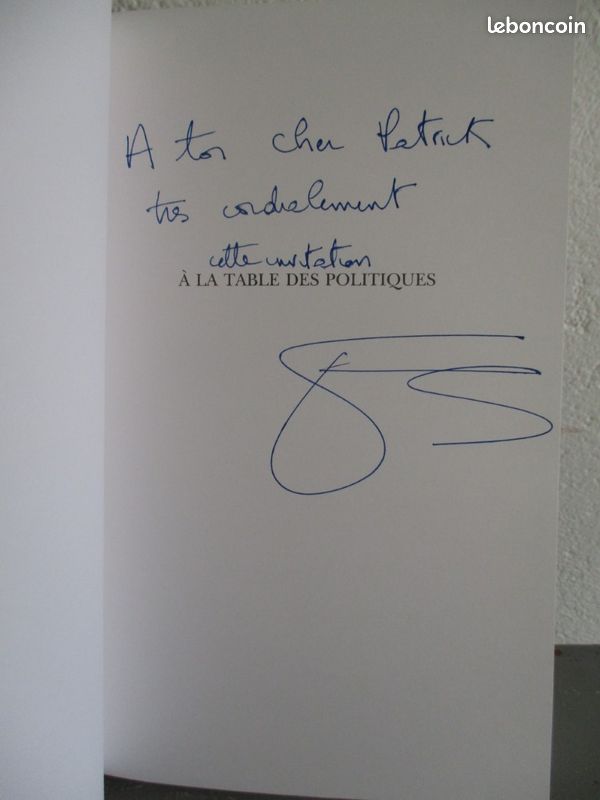 leboncoin
A toi cher Patrick
très cordialement
cette invitation
À LA TABLE DES POLITIQUES